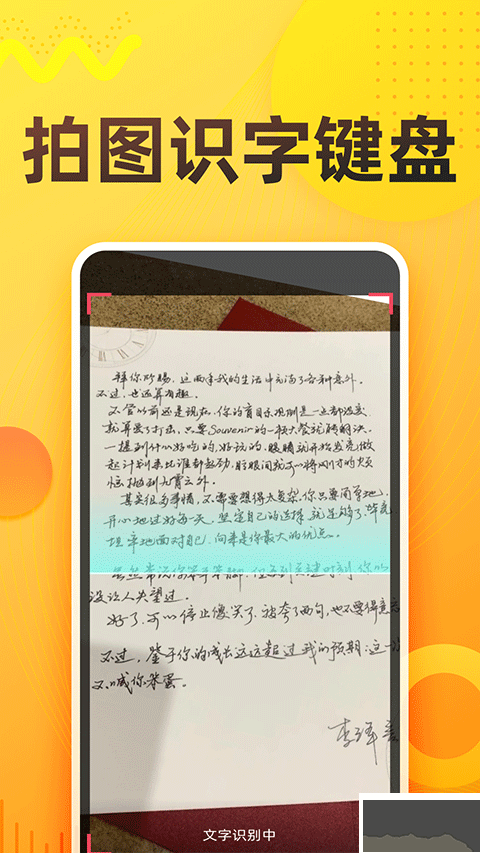 拍图识字键盘
拜你所赐，这两年我的生活中充满了各种意外。
不过，也还算有趣。
不管以前还是现在，你的盲目乐观是一点都没变
就算受了打击，只要Souvenir的一顿大餐就能解决。
一提到什么好吃的，好玩的，眼睛就开始发亮，做
起计划来比谁都起劲，眨眼间就可以将刚才的烦
恼抛到九霄云外。
其实很多事情，不需要想得太复杂，你只要简单地、
开心地过好每一天，坚定自己的选择，就足够了。
坦率地面对自己，向来是你最大的优点。
虽然常说你笨手笨脚，但
没让人失望过。
好了，可以停止傻笑了，被夸了两句，也不要得意忘
不过，鉴于你的成长远远超过我的预期，这一次
不喊你笨蛋。
李泽言
文字识别中